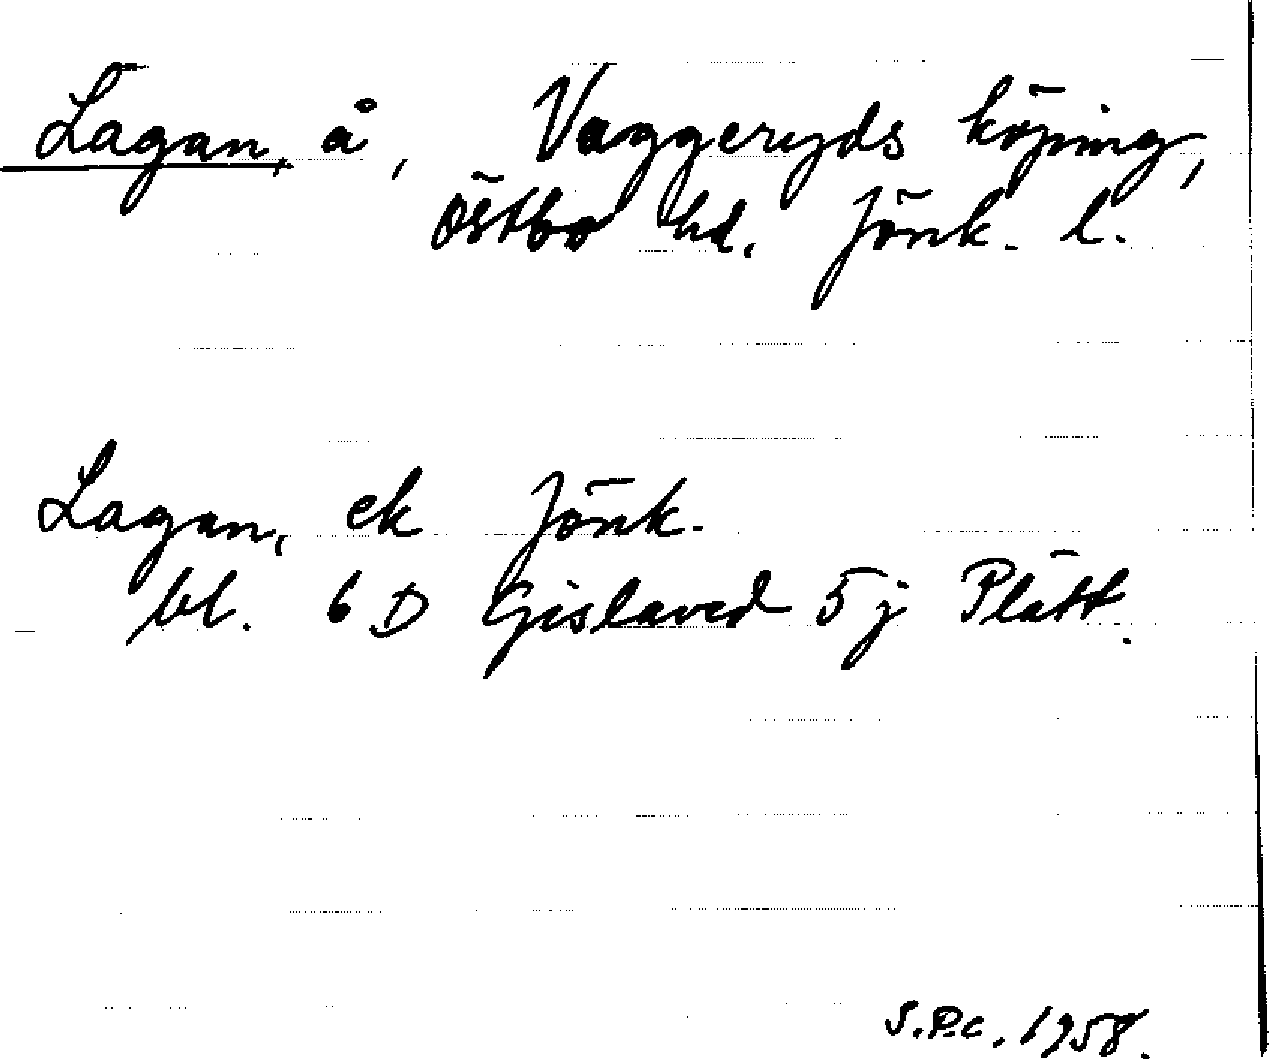 Lagan, å, Vaggeryds köping,
Östbo hd. Jönk. l.
Lagan, ek Jönk.
bl. 6 D Gislaved 5 j Plätt.
S.P.C. 1958.